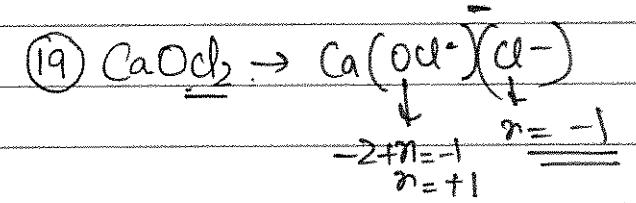 (19) CaOCl₂ → Ca(OCl⁻)(Cl⁻)
-2+n=-1
n=+1
n= -1